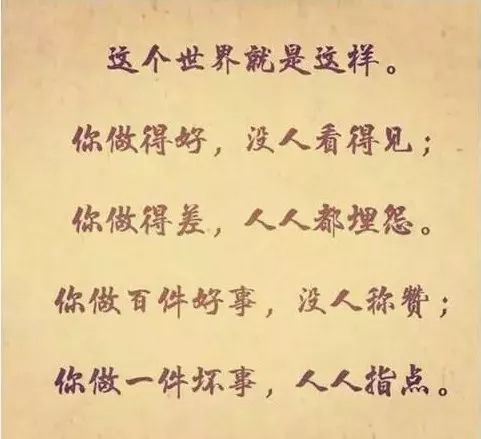 这个世界就是这样。
你做得好，没人看得见；
你做得差，人人都埋怨。
你做百件好事，没人称赞；
你做一件坏事，人人指点。